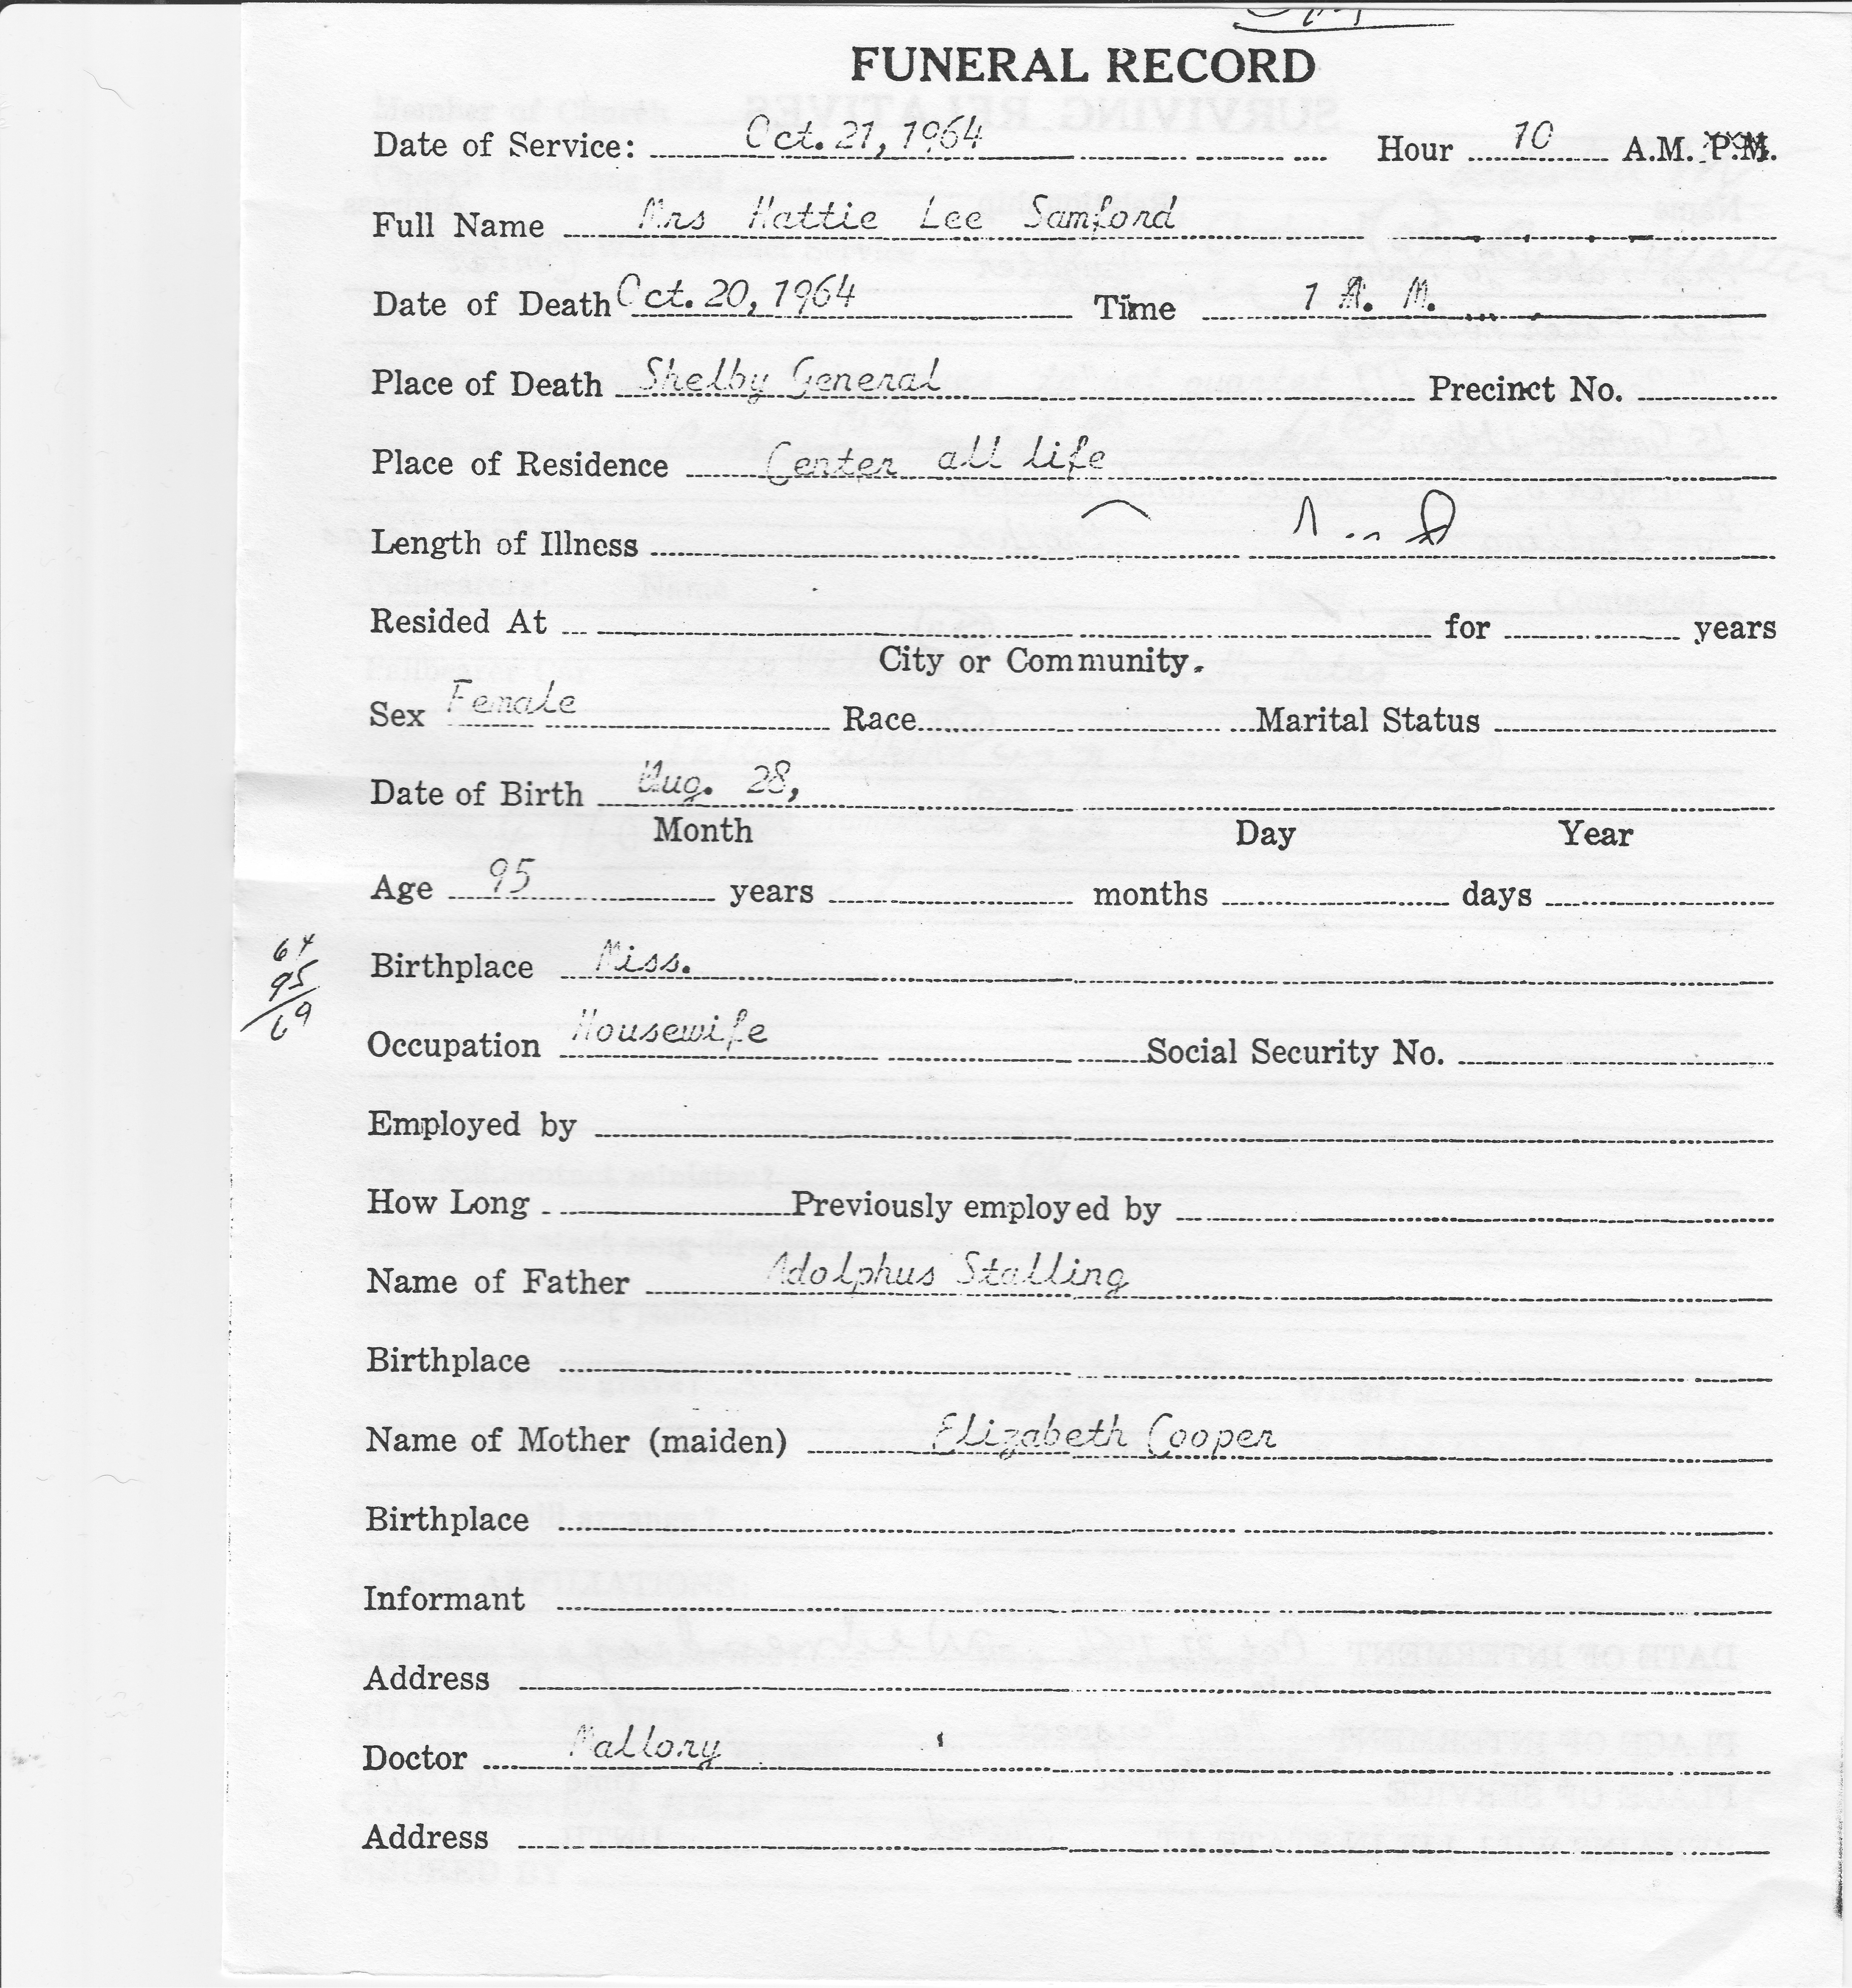 FUNERAL RECORD
Date of Service: Oct. 21, 1964 Hour 10 A.M. P.M.
Full Name Mrs Hattie Lee Samford
Date of Death Oct. 20, 1964 Time 1 A. M.
Place of Death Shelby General Precinct No.
Place of Residence Center all life
Length of Illness
Resided At for years
City or Community.
Sex Female Race Marital Status
Date of Birth Aug. 28,
Month Day Year
Age 95 years months days
64
Birthplace Miss.
95
69
Occupation Housewife Social Security No.
Employed by
How Long Previously employed by
Name of Father Adolphus Stalling
Birthplace
Name of Mother (maiden) Elizabeth Cooper
Birthplace
Informant
Address
Doctor Mallory
Address